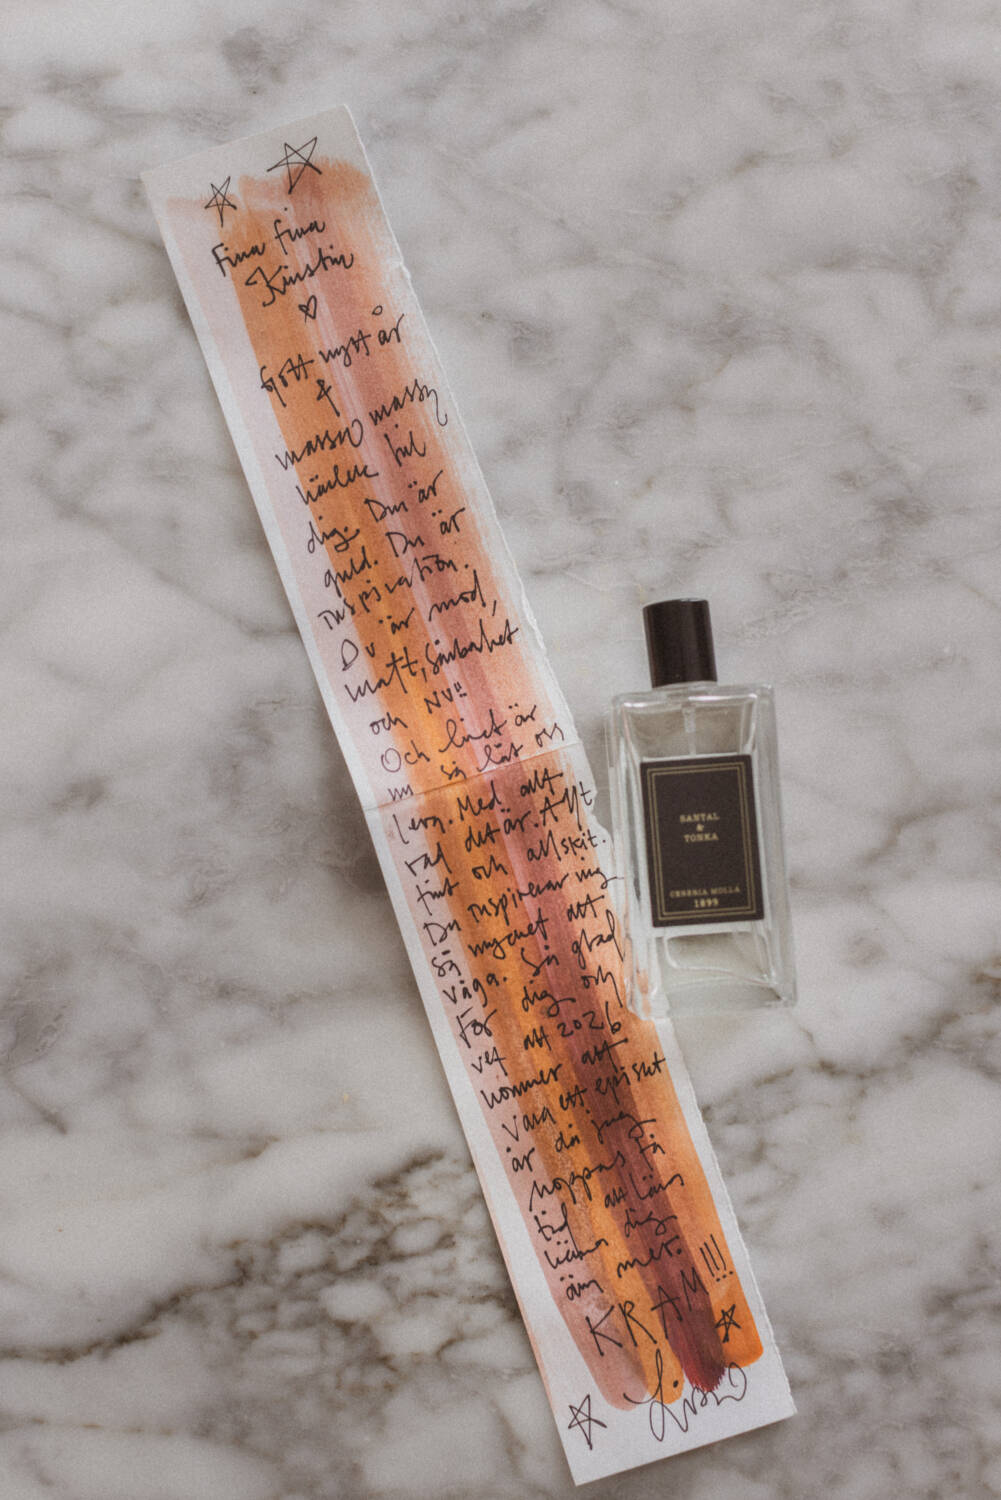 Fina fina
Kirstin
Gott nytt år
&
massor massor
kärlek till
dig. Du är
guld. Du är
inspiration.
Du är mod,
kraft, sårbarhet
och NU!!
Och livet är
nu så låt oss
leva. Med allt
vad det är. Allt
fint och all skit.
Du inspirerar mig
så mycket att
våga. Så glad
för dig och
vet att 2026
kommer att
vara ett episkt
år då jag
hoppas få
tid att lära
känna dig
än mer.
KRAM!!!
SANTAL
&
TONKA
CERERIA MOLLÁ
1899